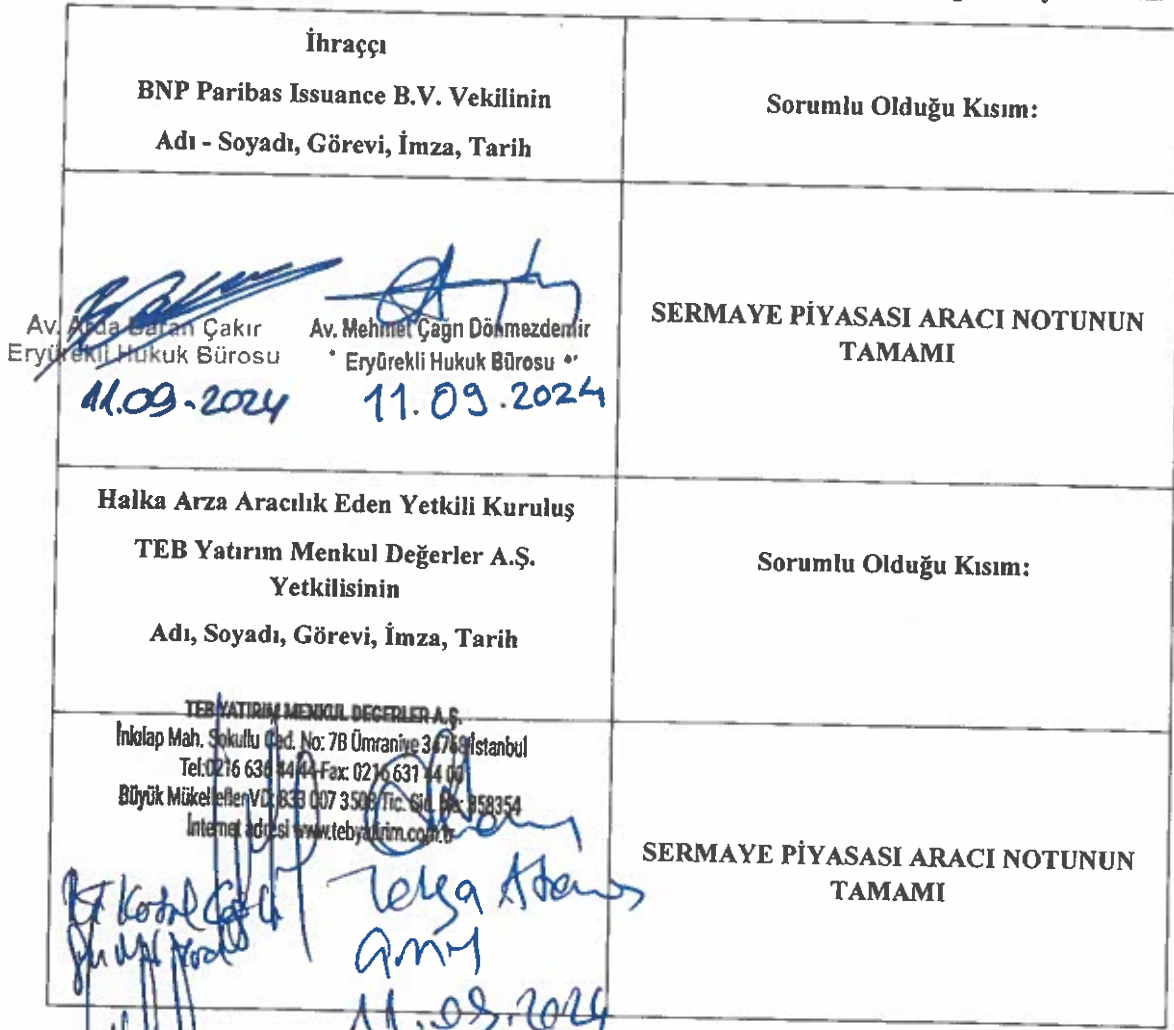 İhraççı
BNP Paribas Issuance B.V. Vekilinin
Adı - Soyadı, Görevi, İmza, Tarih
Sorumlu Olduğu Kısım:
Av. Arda Baran Çakır
Eryürekli Hukuk Bürosu
11.09.2024
Av. Mehmet Çağrı Dönmezdemir
Eryürekli Hukuk Bürosu
11.09.2024
SERMAYE PİYASASI ARACI NOTUNUN
TAMAMI
Halka Arza Aracılık Eden Yetkili Kuruluş
TEB Yatırım Menkul Değerler A.Ş.
Yetkilisinin
Adı, Soyadı, Görevi, İmza, Tarih
Sorumlu Olduğu Kısım:
TEB YATIRIM MENKUL DEĞERLER A.Ş.
İnkılap Mah. Sokullu Cad. No: 7B Ümraniye 34768 İstanbul
Tel:0216 636 44 44 Fax: 0216 631 44 00
Büyük Mükellefler VD: 833 007 3509 Tic. Sic. No: 358354
İnternet adresi www.tebyatirim.com.tr
Tolga
GMY
11.09.2024
SERMAYE PİYASASI ARACI NOTUNUN
TAMAMI